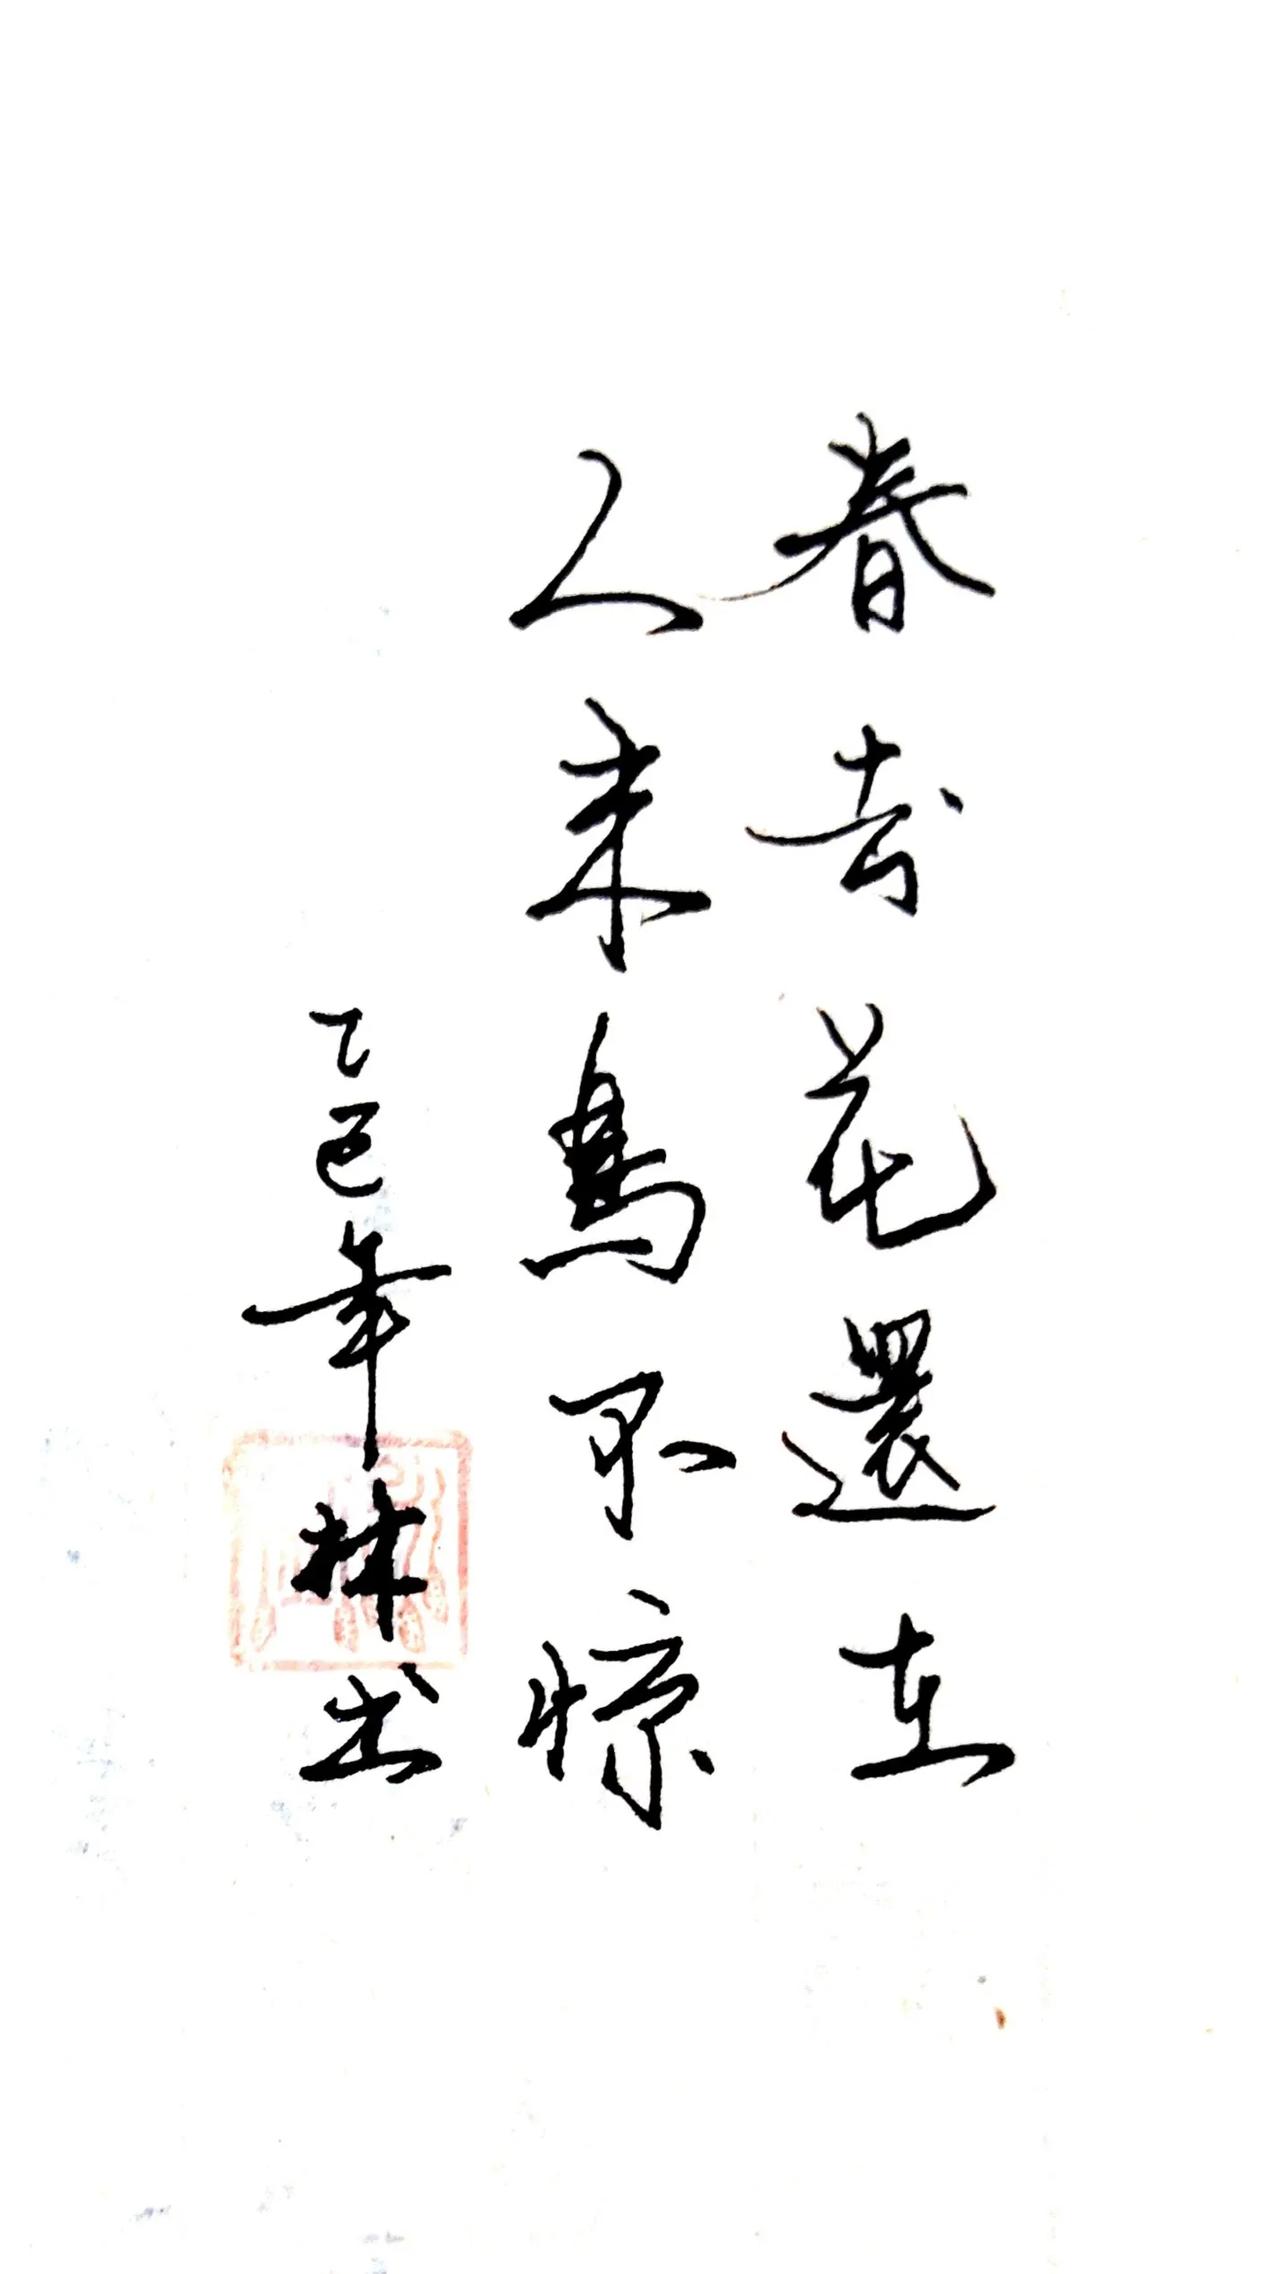 春去花還在
人来鳥不惊
乙巳年林书